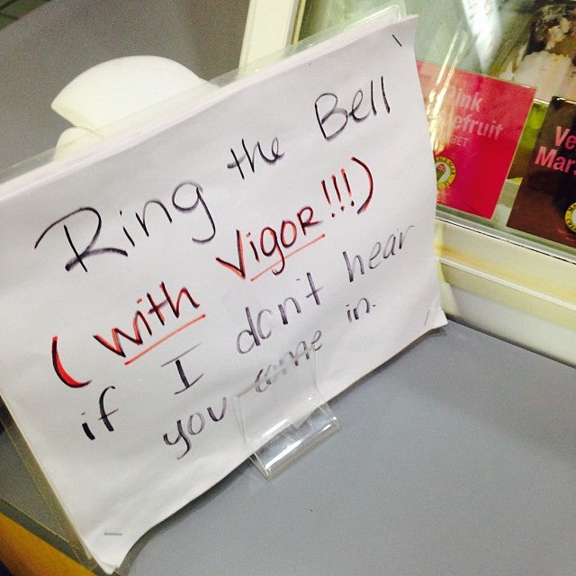 Ring the Bell
(with VigoR!!!)
if I don't hear
you come in.
Pink
efruit
BET
Ve
Mars